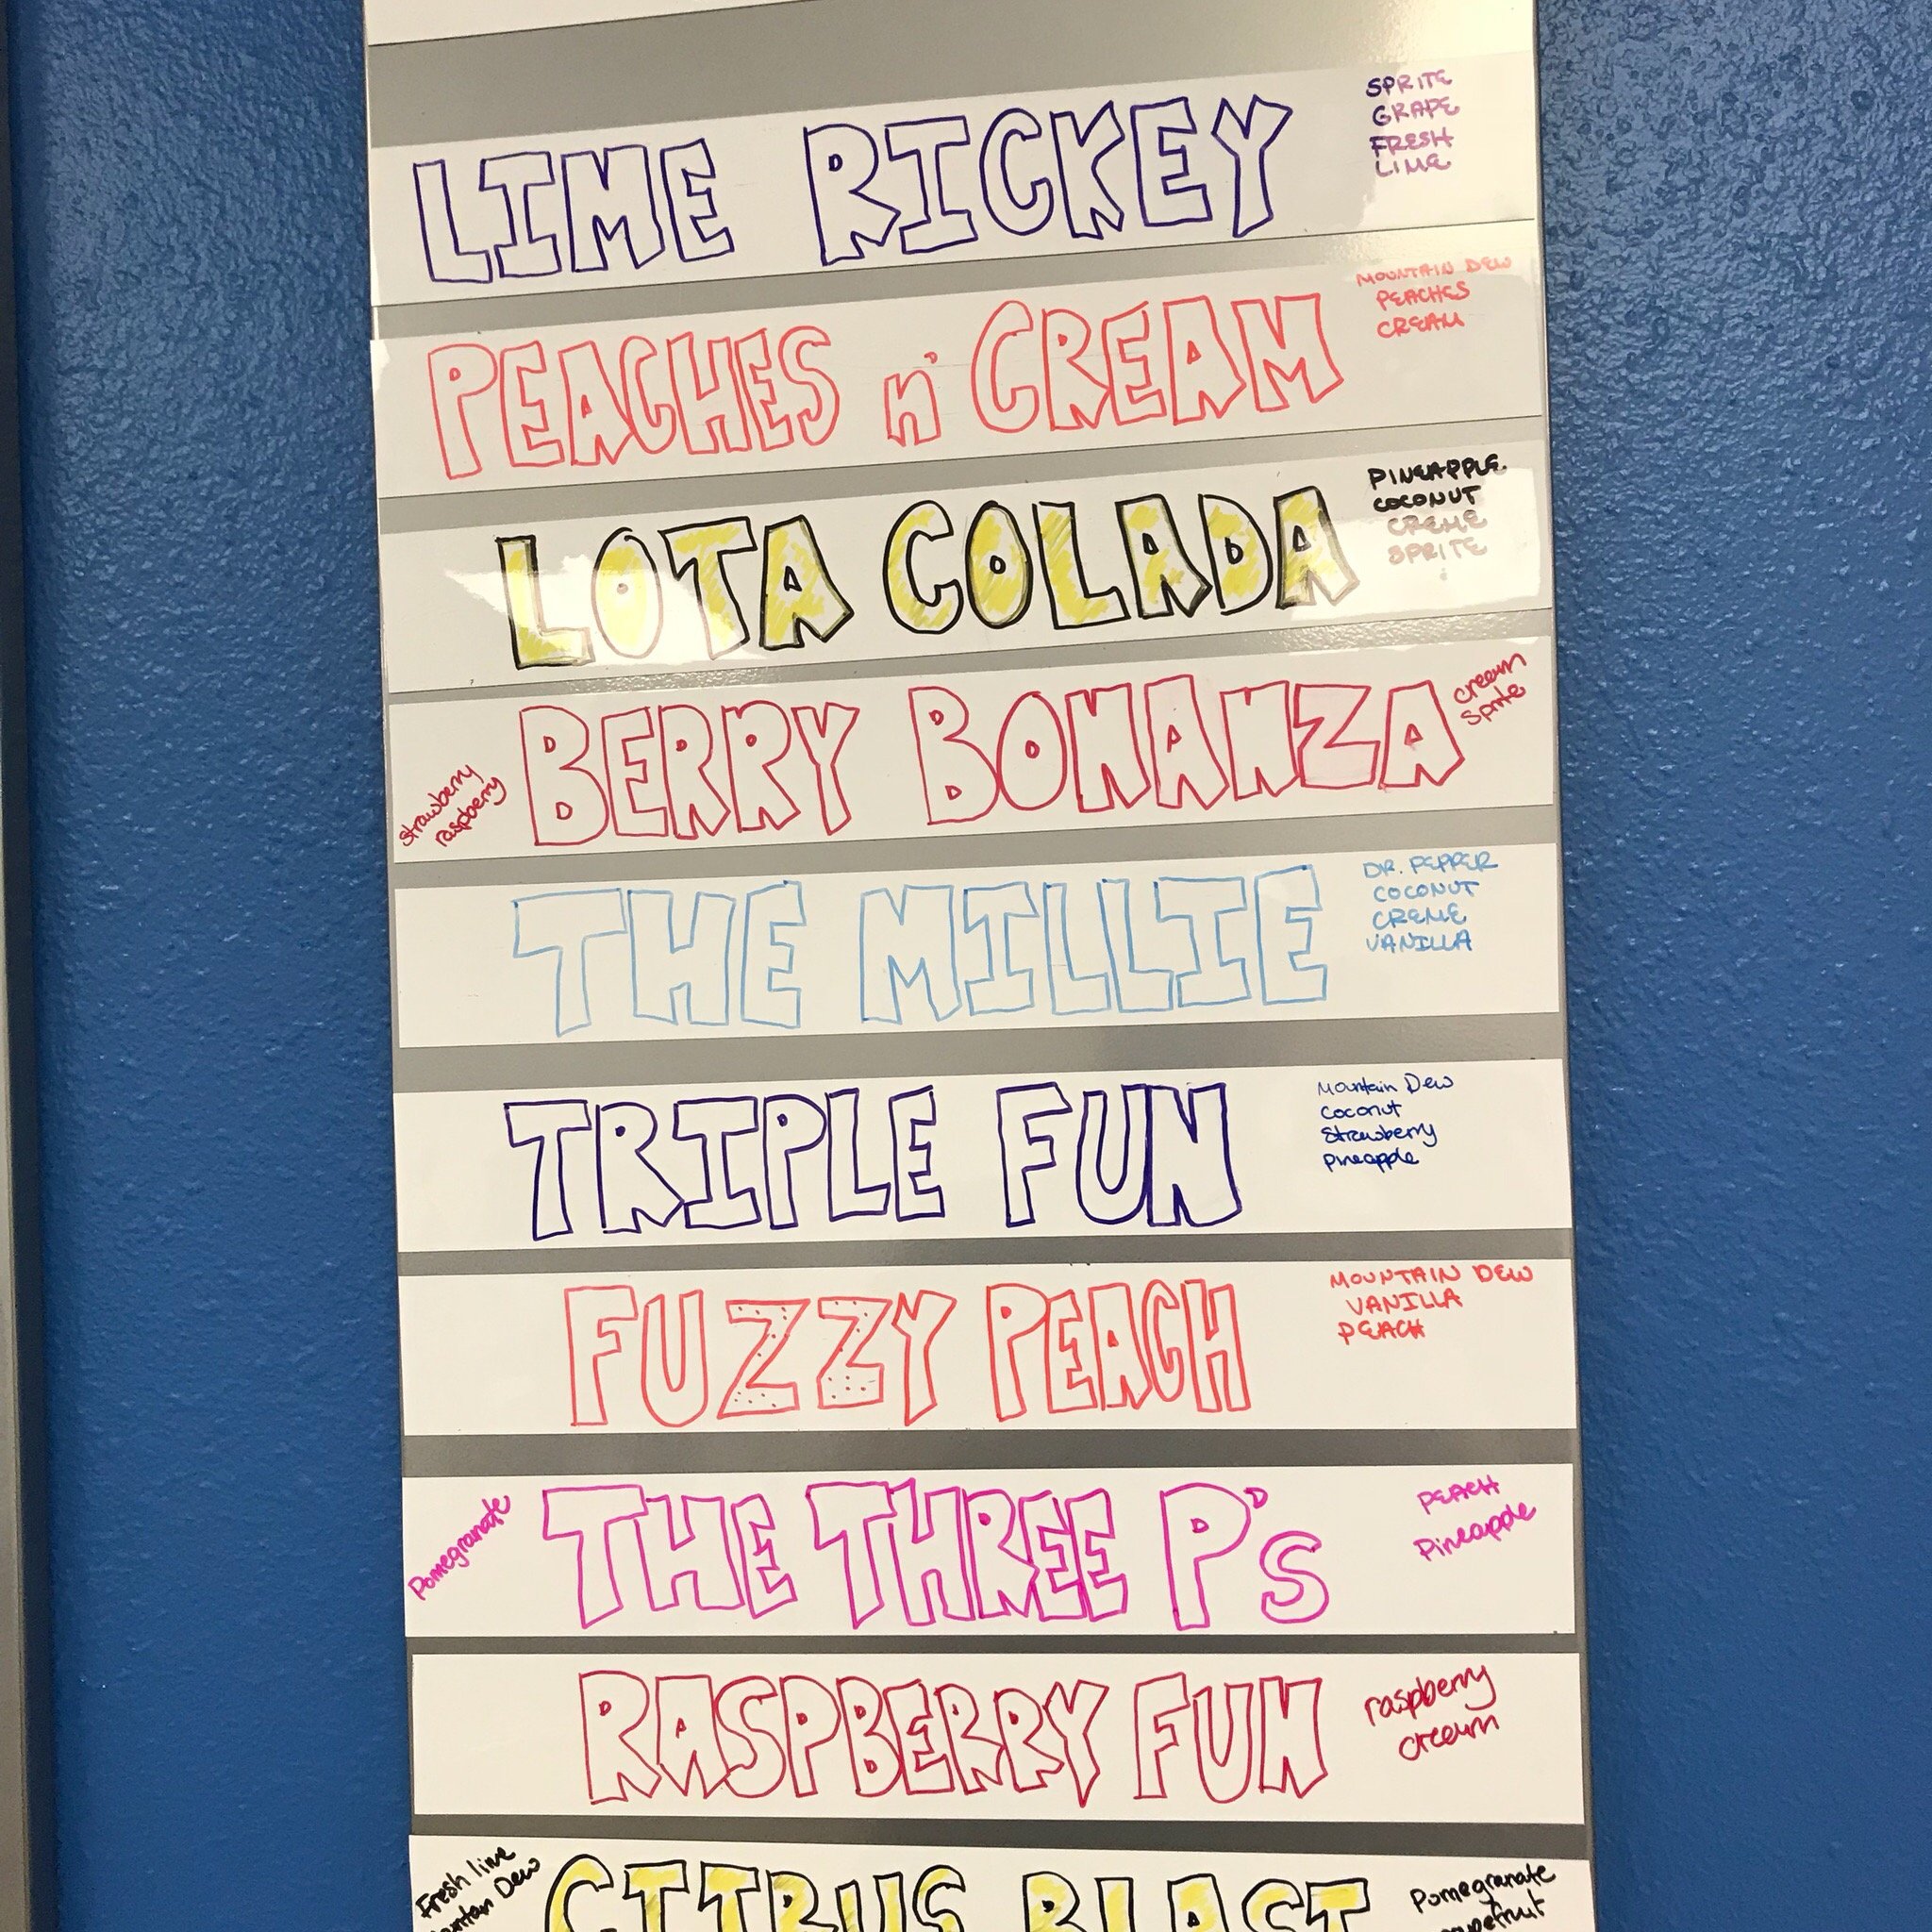 LIME RICKEY
SPRITE
GRAPE
FRESH
LIME
PEACHES n' CREAM
MOUNTAIN DEW
PEACHES
CREAM
LOTA COLADA
PINEAPPLE
COCONUT
CREME
SPRITE
strawberry
raspberry
BERRY BONANZA
cream
Sprite
THE MILLIE
DR. PEPPER
COCONUT
CREME
VANILLA
TRIPLE FUN
Mountain Dew
Coconut
Strawberry
pineapple
FUZZY PEACH
MOUNTAIN DEW
VANILLA
PEACH
Pomegranate
THE THREE P's
PEACH
Pineapple
RASPBERRY FUN
raspberry
cream
Fresh lime
Dew
CITRUS BLAST
Pomegranate